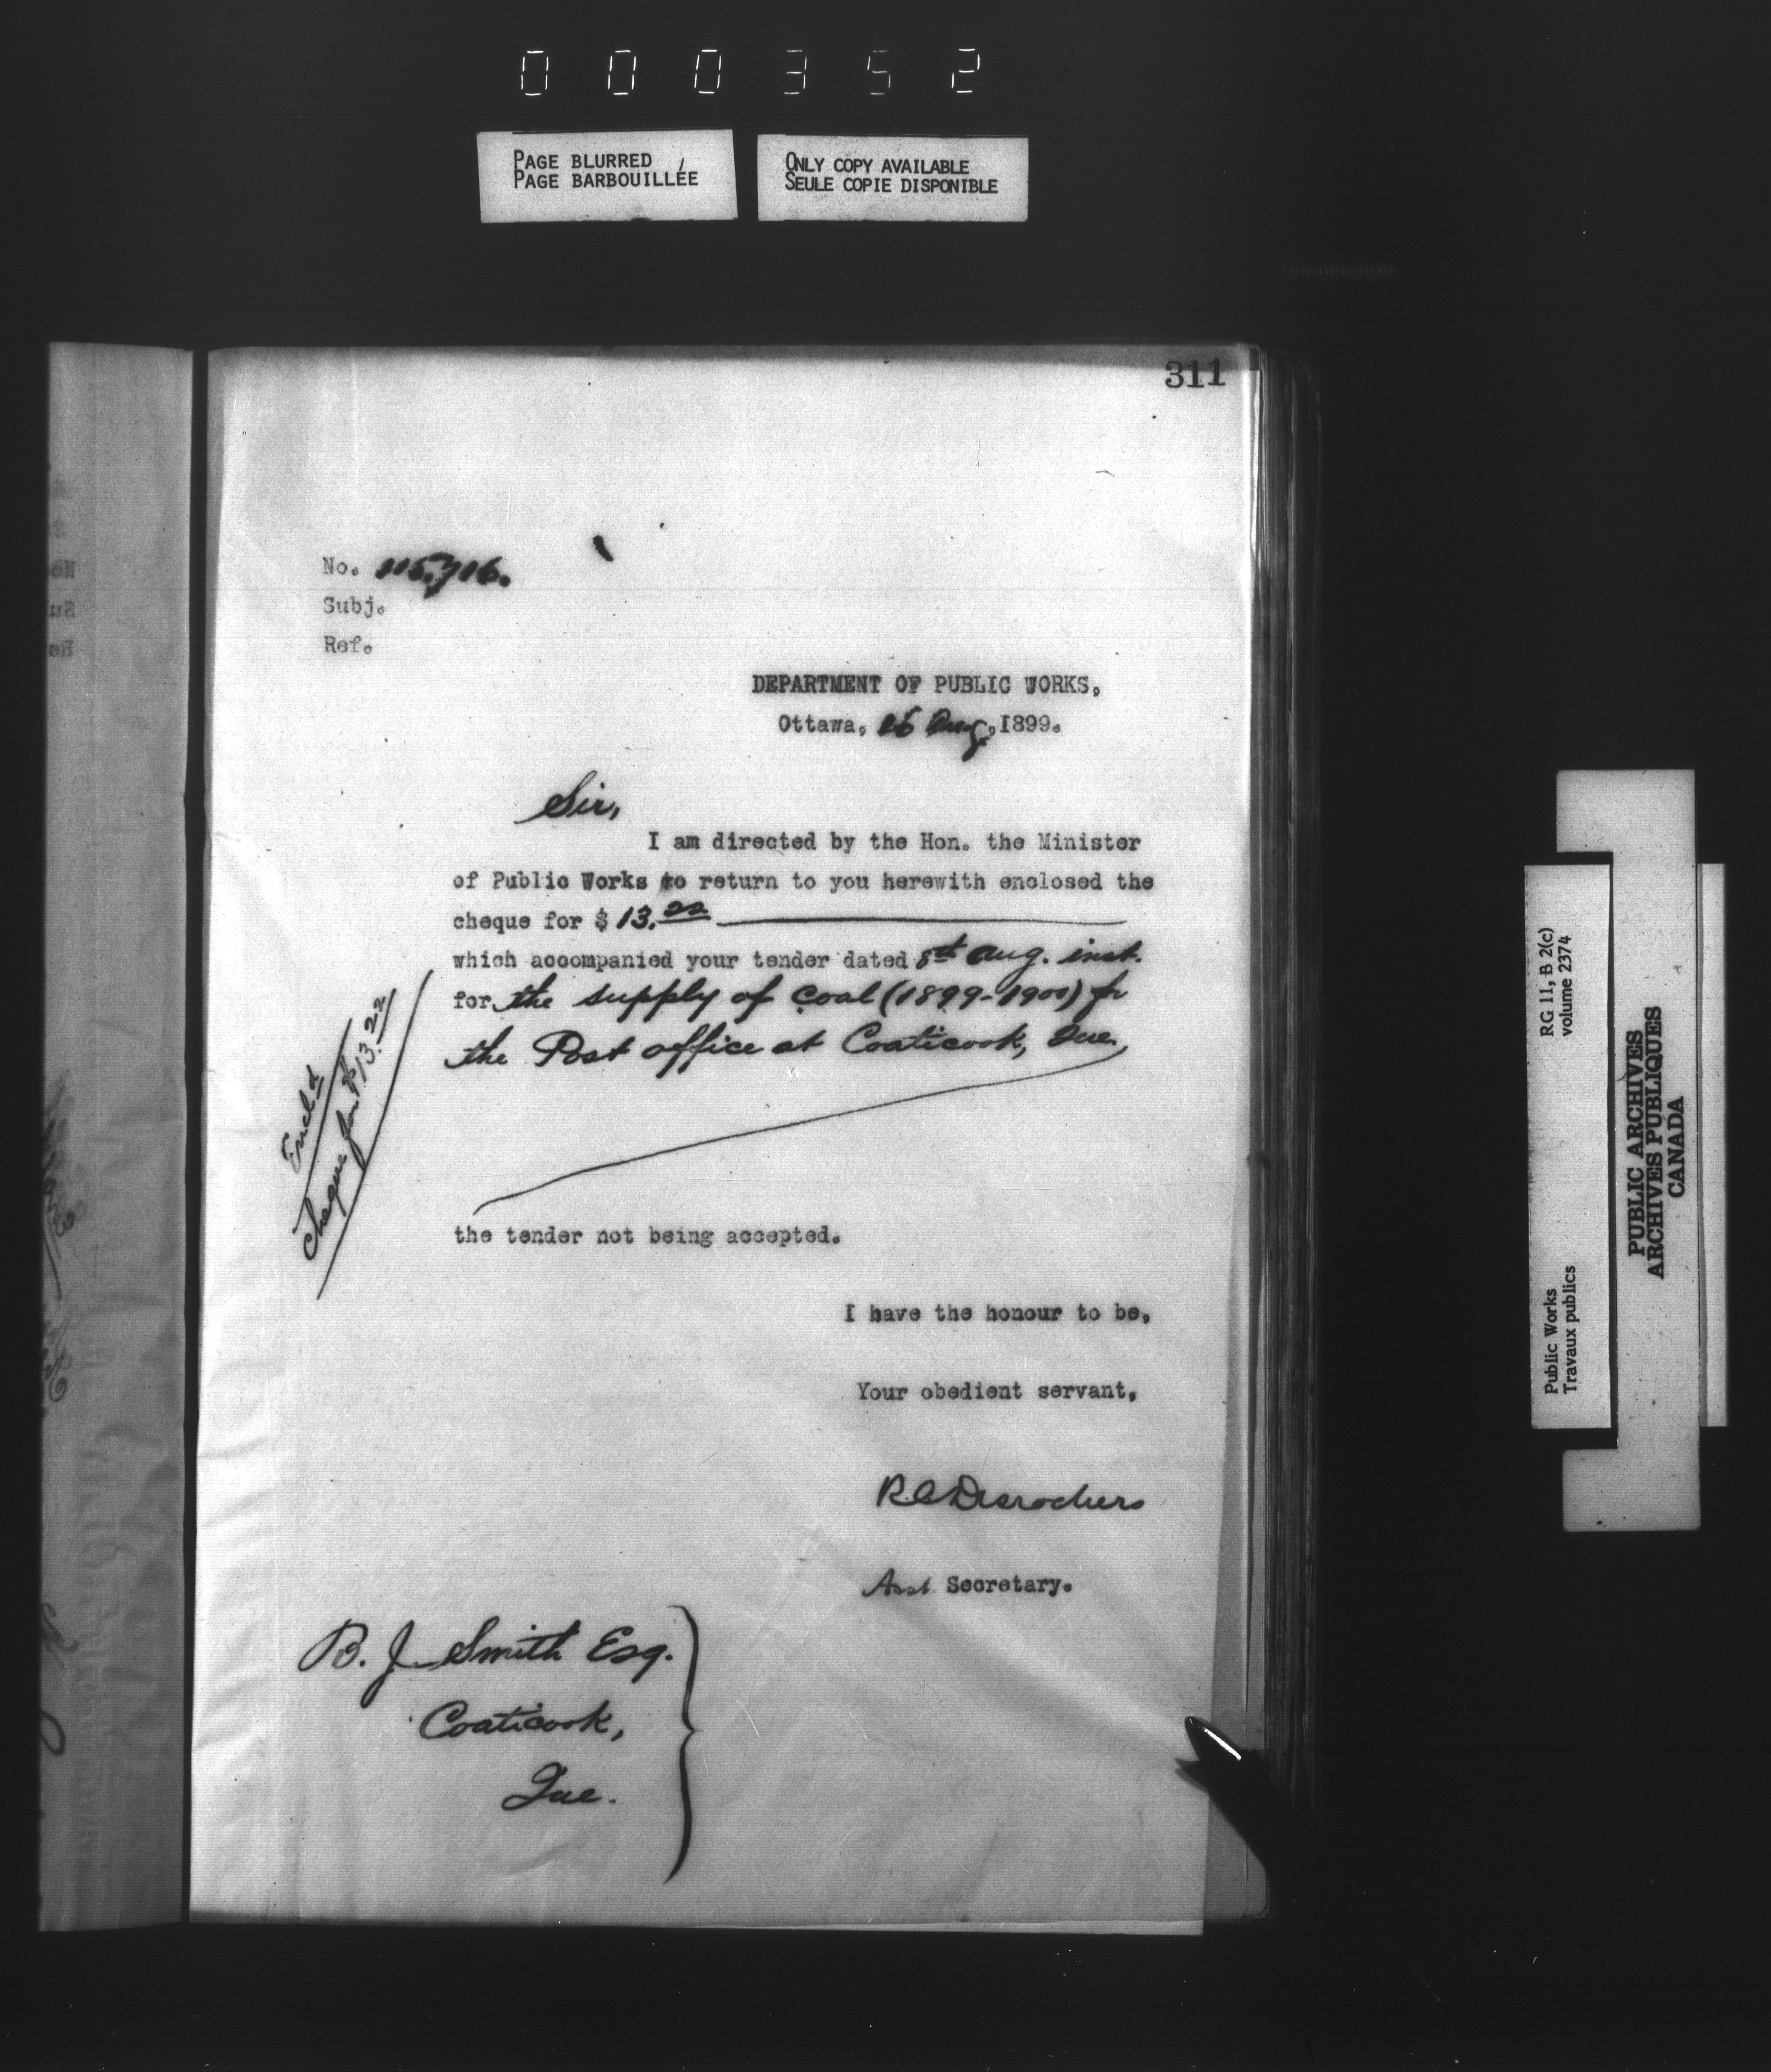 000352
PAGE BLURRED
PAGE BARBOUILLÉE
ONLY COPY AVAILABLE
SEULE COPIE DISPONIBLE
311
No. 115,716.
Subj.
Ref.
DEPARTMENT OF PUBLIC WORKS,
Ottawa, 16 Aug, 1899.
Sir,
I am directed by the Hon. the Minister
of Public Works to return to you herewith enclosed the
cheque for $ 13.22
which accompanied your tender dated 8th Aug. inst.
for the supply of coal (1899-1900) for
the Post office at Coaticook, Que,
Encld
Cheque for $13.22
the tender not being accepted.
I have the honour to be,
Your obedient servant,
R.C. Desrochers
Asst. Secretary.
B. J. Smith Esq.
Coaticook,
Que.
RG 11, B 2(c)
volume 2374
Public Works
Travaux publics
PUBLIC ARCHIVES
ARCHIVES PUBLIQUES
CANADA